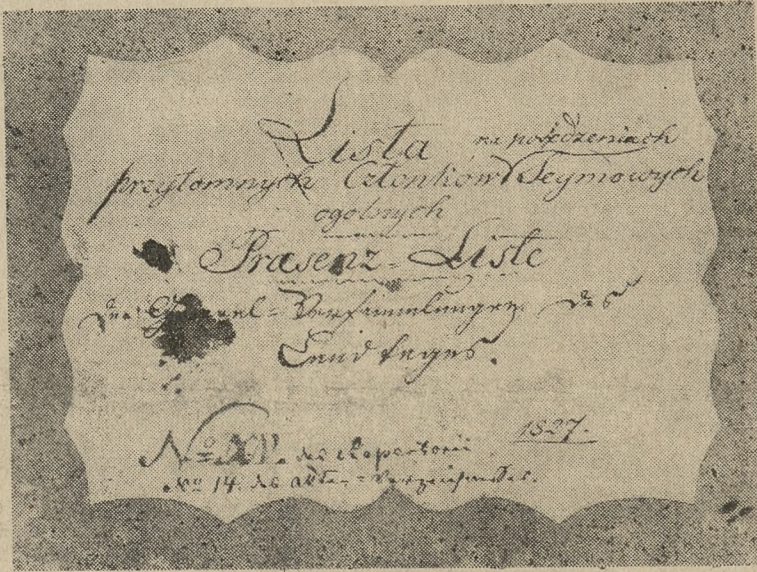 Lista na posiedzeniach
przytomnych Członków Seymowych
ogolnych
Præsenz-Liste
der General-Versammlungen des
Landtages.
1827.
No XV. des Repertorii
No 14. des Akten-Verzeichnisses.